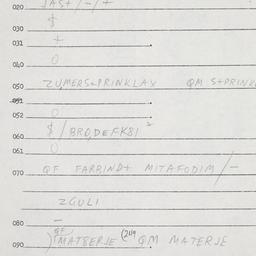 020 JAST/-/+
030 $
031 +
040 0
050 ZUMERS&PRINKLAX QM S+PRINK
051
052 0
060 $/BRO,DEFK81 2
061 0
070 QF FARBIND+ MITAFODIM/-
ZGULI
080 -
QF
090 )MATBERJE (2119 QM MATERJE